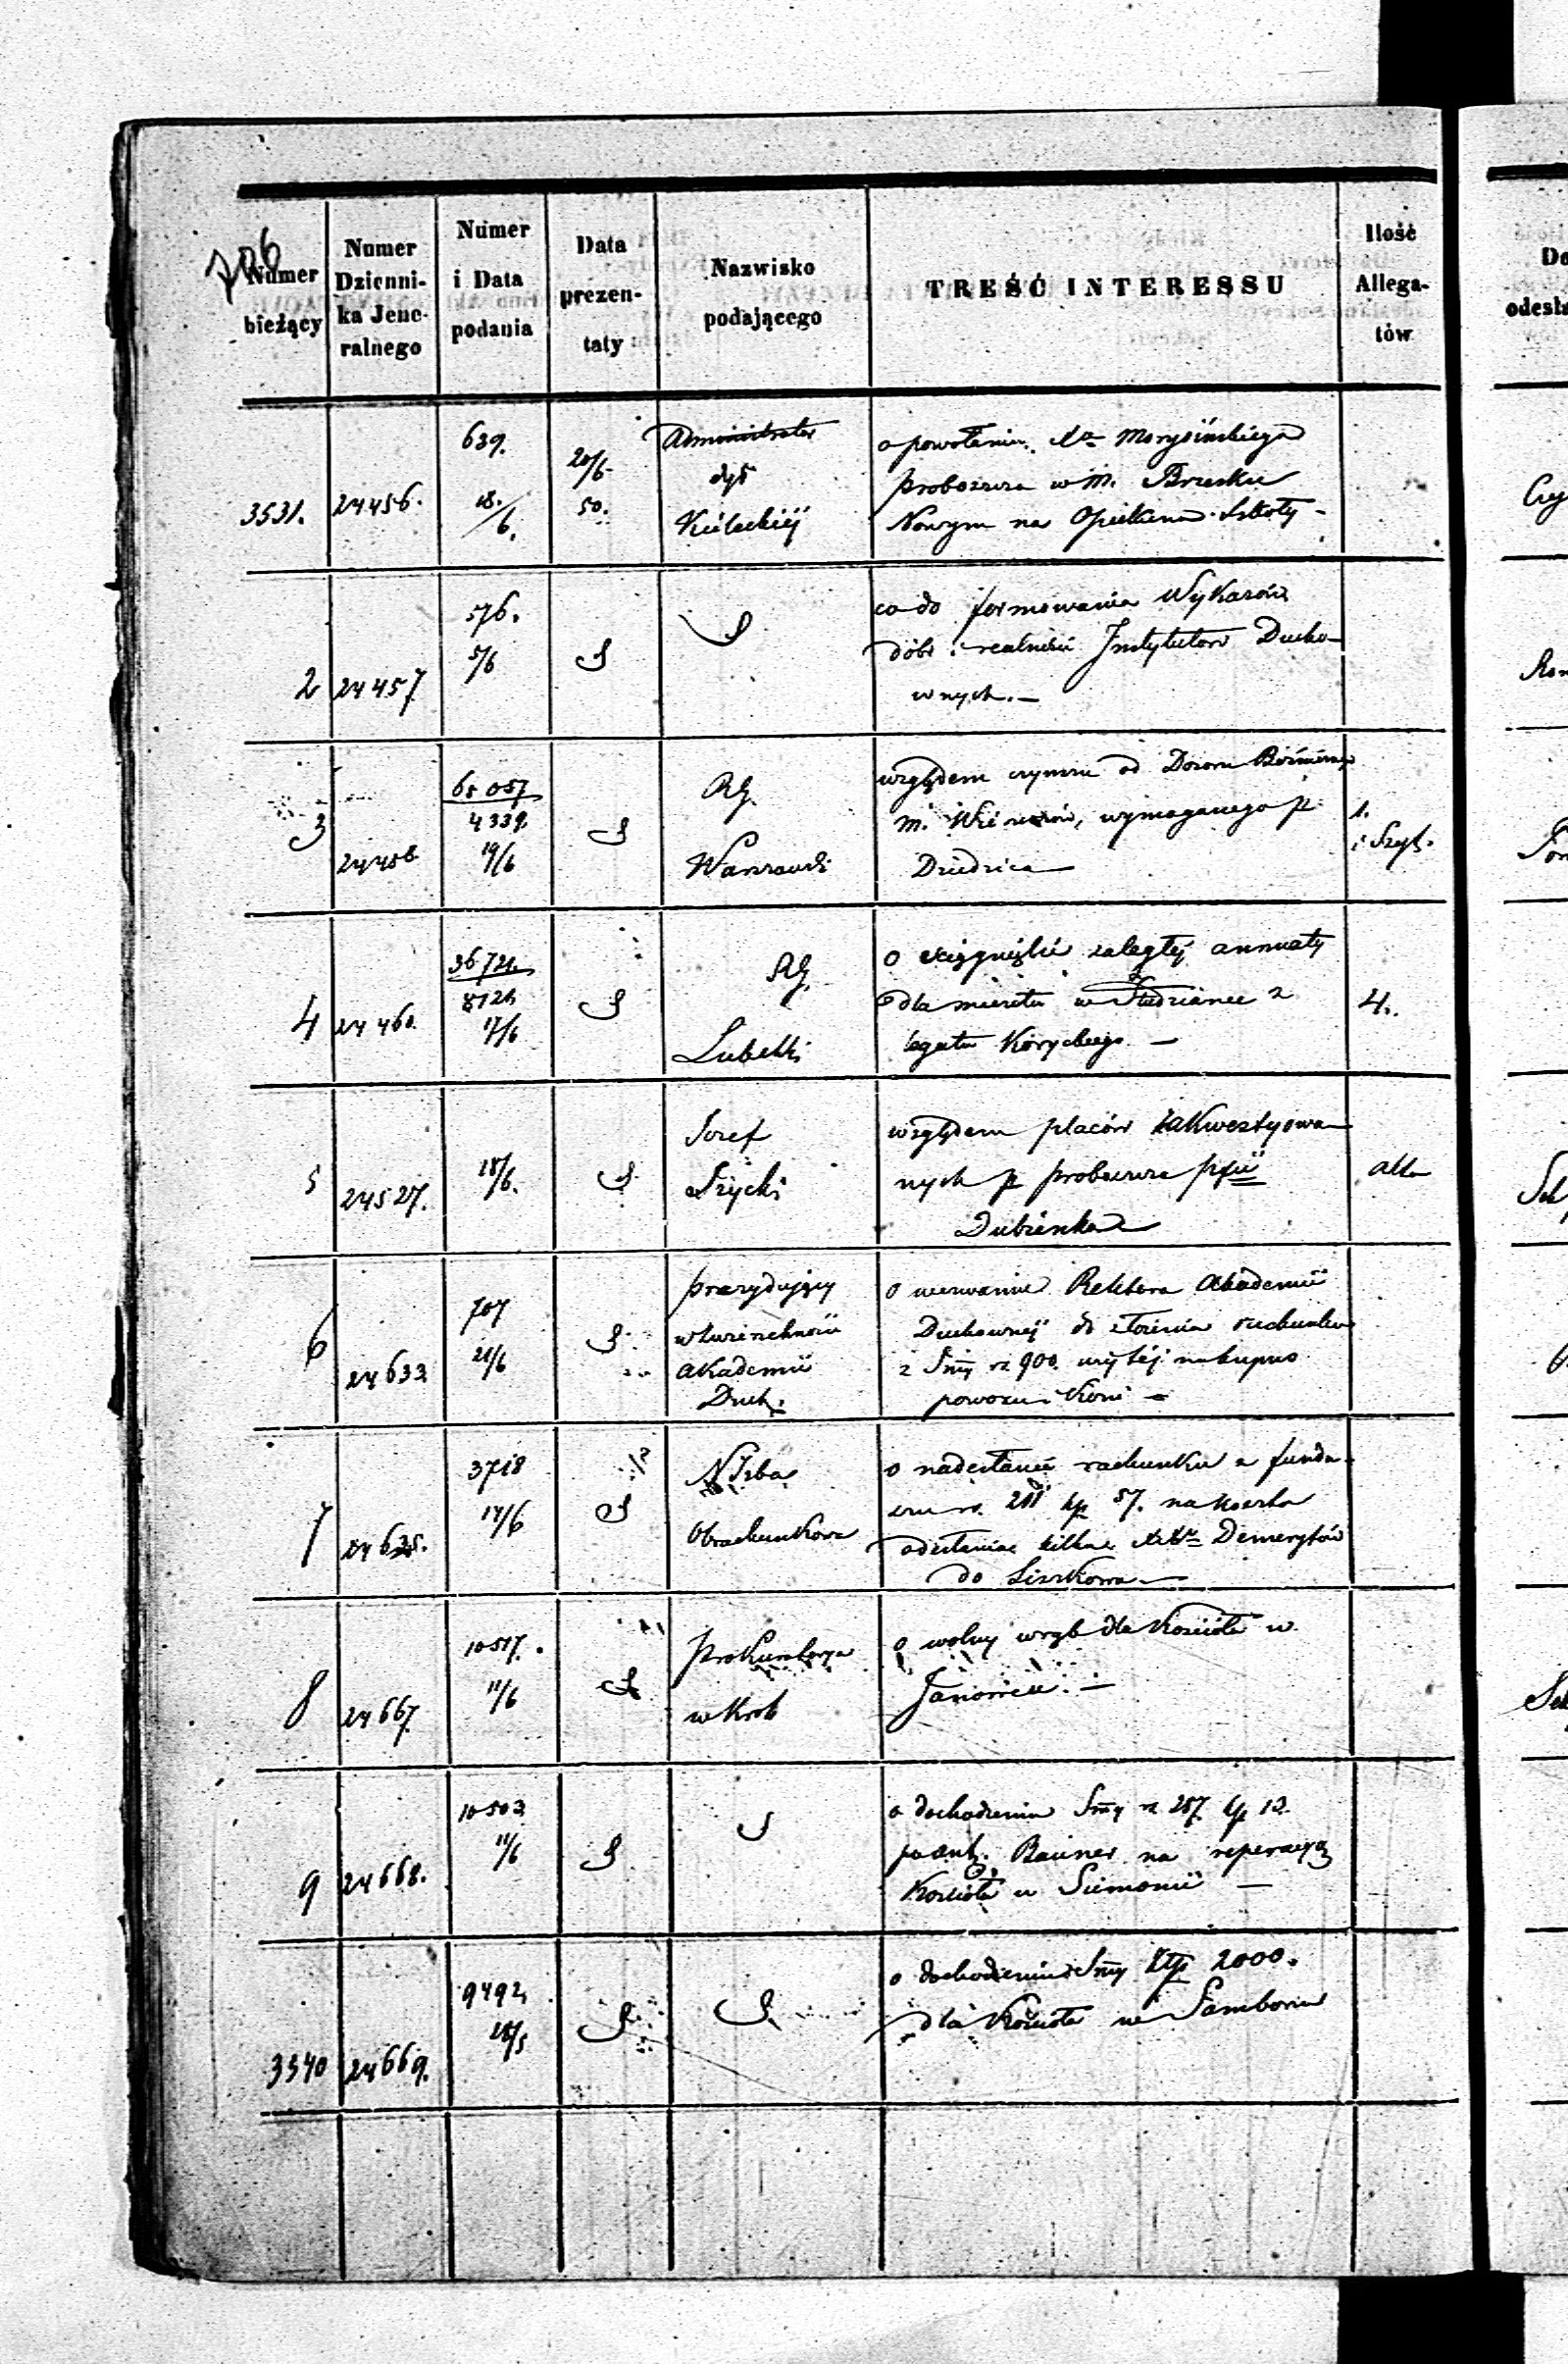 706
Numer bieżący
Numer Dzienni- ka Jene- ralnego
Numer i Data podania
Data prezen- taty
Nazwisko podającego
TREŚĆ INTERESSU
Ilość Allega- tów
3531. 24456. 639. 18./6. 20/6 50. Administrator dyś Kieleckiéj
o powołaniu Xa Morysińskiego
proboszcza w m. Brzesku
Nowym na Opiekuna Szkoły -
2 24457 576. 5/6
co do formowania Wykazów
dóbr i realności Instytutów Ducho-
wnych. -
3 24458 65057 4339. 19/6 RG. Warszawski
względem czynszu od Dozoru Bóżnicz
m. wymaganego p.
Dziedzica
1.
i Szyt.
4 24460. 36721. 8121 17/6 RG. Lubelski
o ściągnięcie zaległéj annuaty
dla w Studziance z
legatu Koryckiego -
4.
5 24527. 18/6. Jozef Szycki
względem placów zakwestyowa-
nych p proboszcza pfii
Dubienka
alla
6 24633 707 21/6 prezydujący w zwierzchności Akademii Duch.
o wezwanie Rektora Akademii
Duchownéj do złożenia rachunku
z Smy rs 900. użytéj na kupno
powozu i Koni -
7 3718 14/6 N Izba Obrachunkowa
o nadesłanie rachunku z fundu-
szu rs. 211 kp 57. na koszta
odesłania kilku Demerytów
do Liszkowa -
8 24667. 10517. 11/6 Prokuratorya w Król
o wolny wrąb dla Kościoła w
Janowcu. -
9 24668. 10503 11/6
o dochodzeniu Smy rs 287. kp 12.
po ant. Bauner na reperacyą
Kościoła w Siemonii -
3540 24669. 9492 28/5
o dochodzeniu Smy Złp 2000.
dla Kościoła w Samborzu